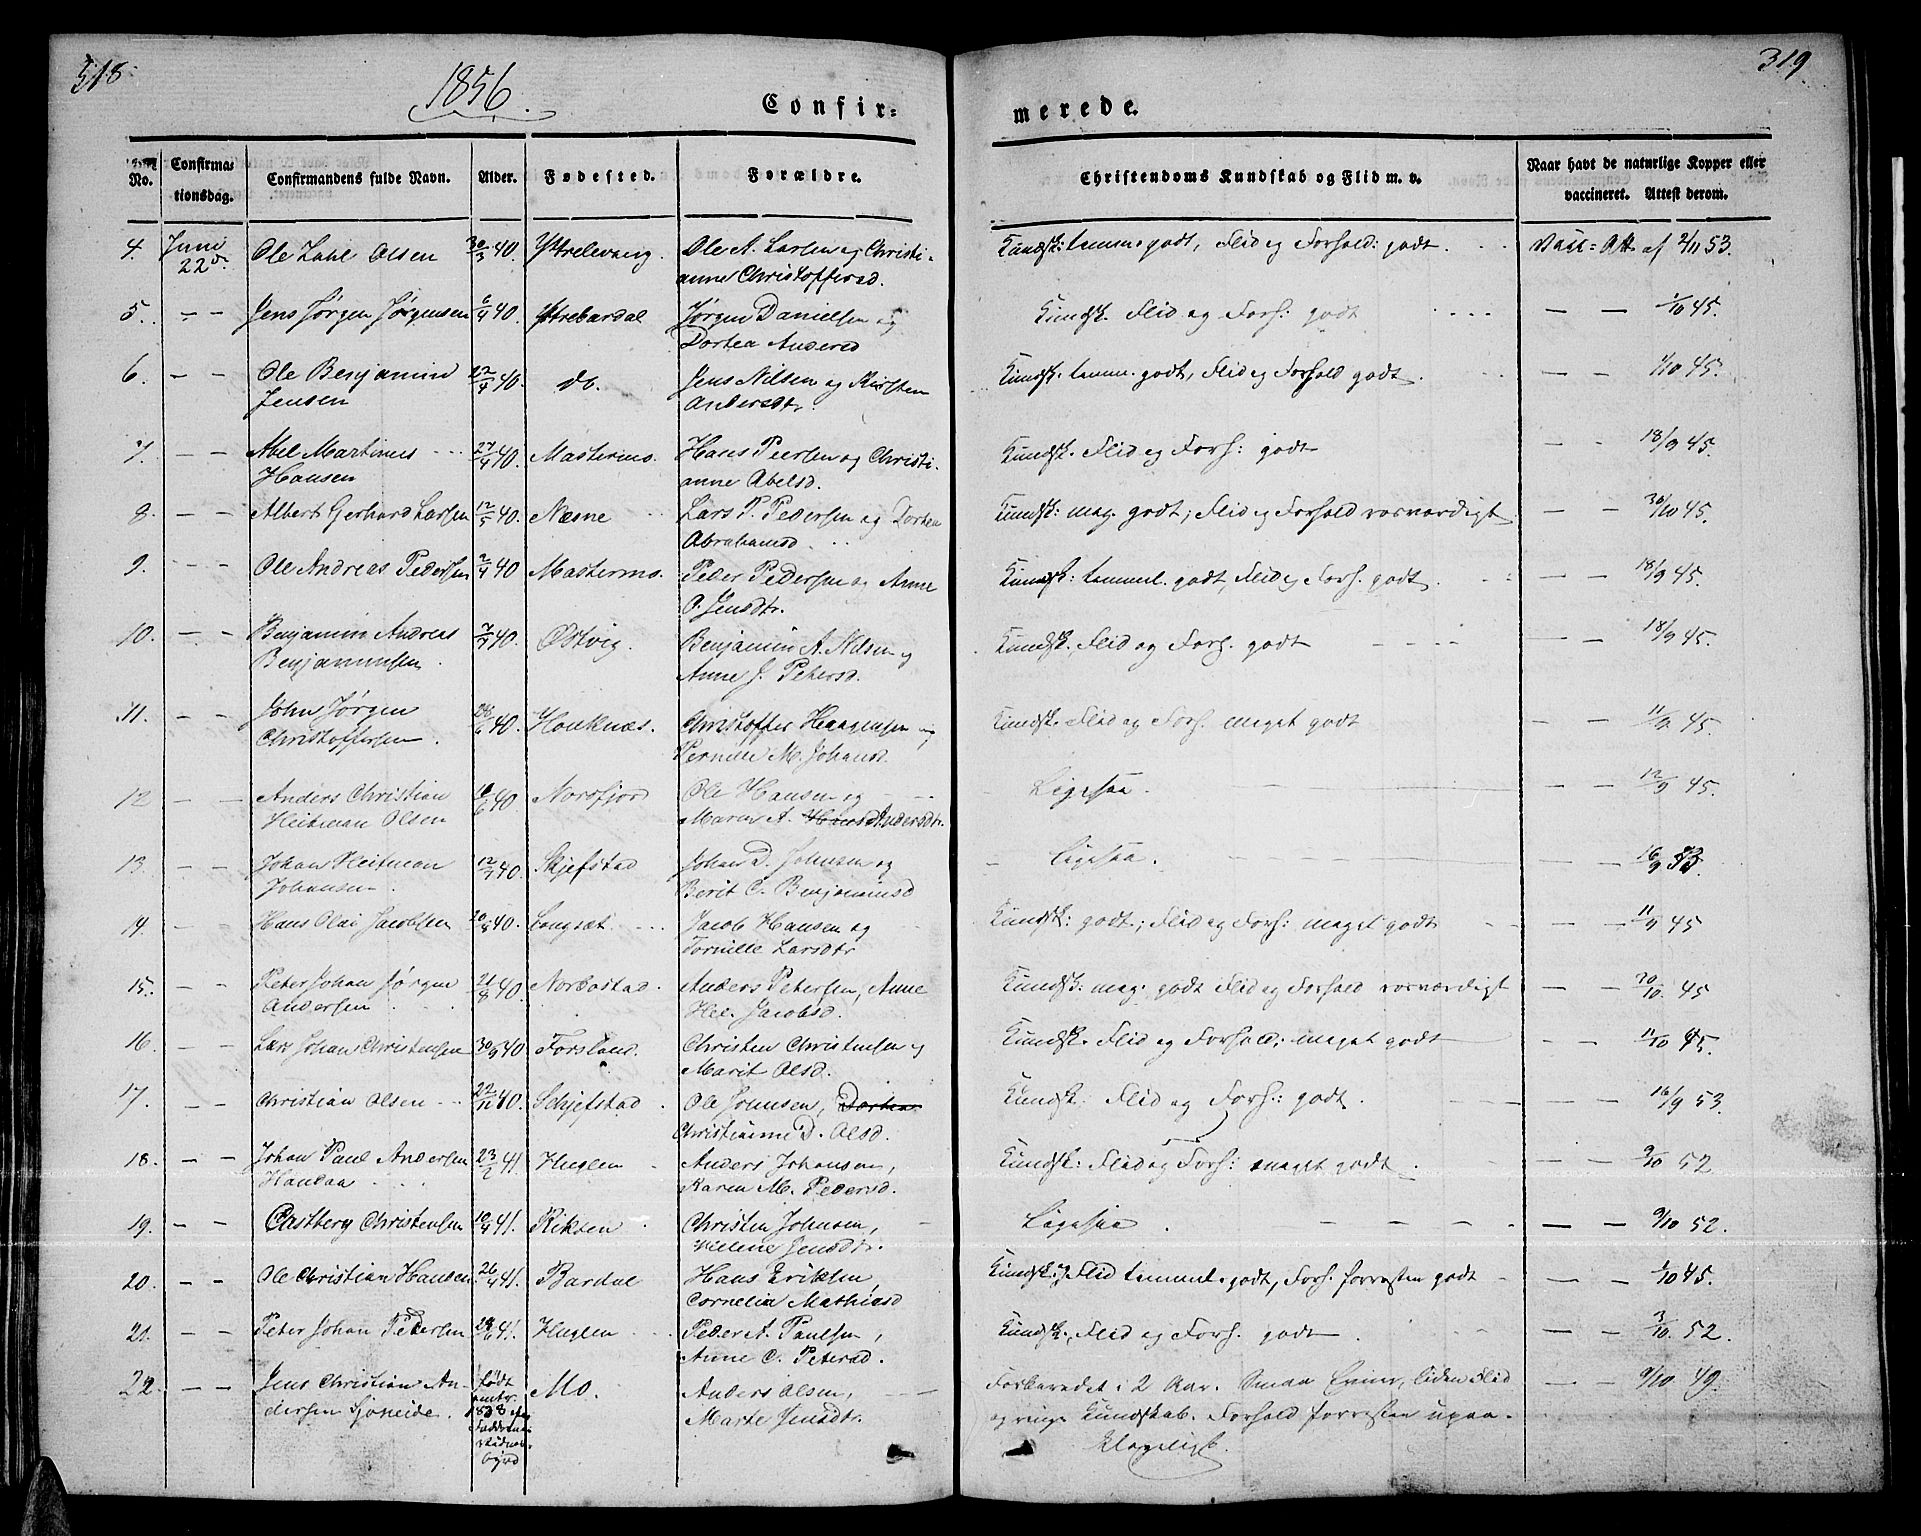 318.
319.
1856.
Confir=
merede.
No.
Confirma=
tionsdag.
Confirmandens fulde Navn.
Alder.
Fødested.
Forældre.
Christendoms Kundskab og Flid m. v.
Naar havt de naturlige Kopper eller
vaccineret. Attest derom.
4. Juni Ole Olsen 30/3 40. Ole A. Larsen og Christi- Kundsk: temm. godt, Flid og Forhold: godt. Vacc: Att. af 2/11 53.
22d. anne Christoffersd.
5. — — Jens Jørgen Jørgensen 6/4 40. Ytrebardal Jørgen Danielsen og Kundsk. Flid og Forh: godt — — 1/10 45.
Dortea Andersd
6. — — Ole Benjamin 22/4 40. do. Jens Nilsen og Kirsten Kundsk. temm. godt, Flid og Forhold godt. — — 1/10 45.
Jensen Andersdtr.
7. — — Abel Martinus 27/4 40. Mastermo. Hans Peersen og Christi- Kundsk. Flid og Forh: godt — — 18/9 45.
Hansen anne Abelsd.
8. — — Albert Gerhard Larsen 12/5 40. Næsne Lars P. Pedersen og Dortea Kundsk: meg. godt; Flid og Forhold rosværdigt — — 30/10 45.
Abrahamsd.
9. — — Ole Andreas Pedersen 2/4 40 Mastermo. Peder Pedersen og Anne Kundsk: temmel. godt, Flid og Forh. godt. — — 18/9 45.
O. Jensdtr.
10. — — Benjamin Andreas 7/7 40. Østvig. Benjamin A. Nilsen og Kundsk. Flid og Forh. godt — — 18/9 45.
Benjaminsen. Anne J. Petersd.
11. — — John Jørgen 28/6 40. Houknæs. Christoffer Haagensen og Kundsk. Flid og Forh. meget godt — — 11/9 45.
Christoffersen. Pernille M. Johansd.
12 — — Anders Christian 10/6 40 Norsfjord Ole Hansen og Ligesaa. — — 12/9 45.
Heitman Olsen Maren A. Andersdtr.
13. — — Johan Heitman 12/7 40. Skjefstad Johan D. Johnsen og Ligesaa. — — 16/9 53.
Johansen. Berit C. Benjaminsd
14. — — Hans Olai Jacobsen 20/8 40. Langset. Jacob Hansen og Kundsk: godt; Flid og Forh: meget godt — — 11/9 45
Larsdtr
15. — — Peter Johan Jørgen 21/8 40. Norbostad. Anders Petersen, Anne Kundsk: meg. godt Flid og Forhold rosværdigt — — 30/10. 45
Andersen Hel. Jacobsd.
16. — — Lars Johan Christensen 30/9 40. Forsland. Christen Christensen og Kundsk. Flid og Forhold: meget godt — — 11/10 45.
Marit Olsd.
17. — — Christian Olsen 22/11 40. Schjefstad Ole Johnsen, Dortea Kundsk: Flid og Forh: godt. — — 16/9 53.
Christianne D. Olsd.
18. — — Johan Paul Andersen 23/2 41 Huglen Anders Johansen, Kundsk: Flid og Forh: meget godt. — — 9/10 52
Handaa Karen M. Pedersd.
19. — — Castberg Christensen 10/4 41. Riksen Christen Johnsen, Ligesaa. — — 9/10 52.
Helene Jensdtr.
20. — — Ole Christian Hansen 26/4 41. Bardal Hans Eriksen, Kundsk. og Flid temmel. godt, Forh. forresten godt — — 1/10 45.
Cornelia Mathiasd
21. — — Peter Johan Pedersen 41. Huglen Peder A. Paulsen, Kundsk., Flid og Forh. godt. — — 3/10. 52.
Anne C. Petersd.
22. — — Jens Christian An- født Mo. Anders Olsen, Forberedet i 2 Aar. Smaa Evner, liden Flid — — 9/10 49.
dersen 1838 Marte Jensdtr. og ringe Kundskab. Forhold forresten upaa-
klageligt.